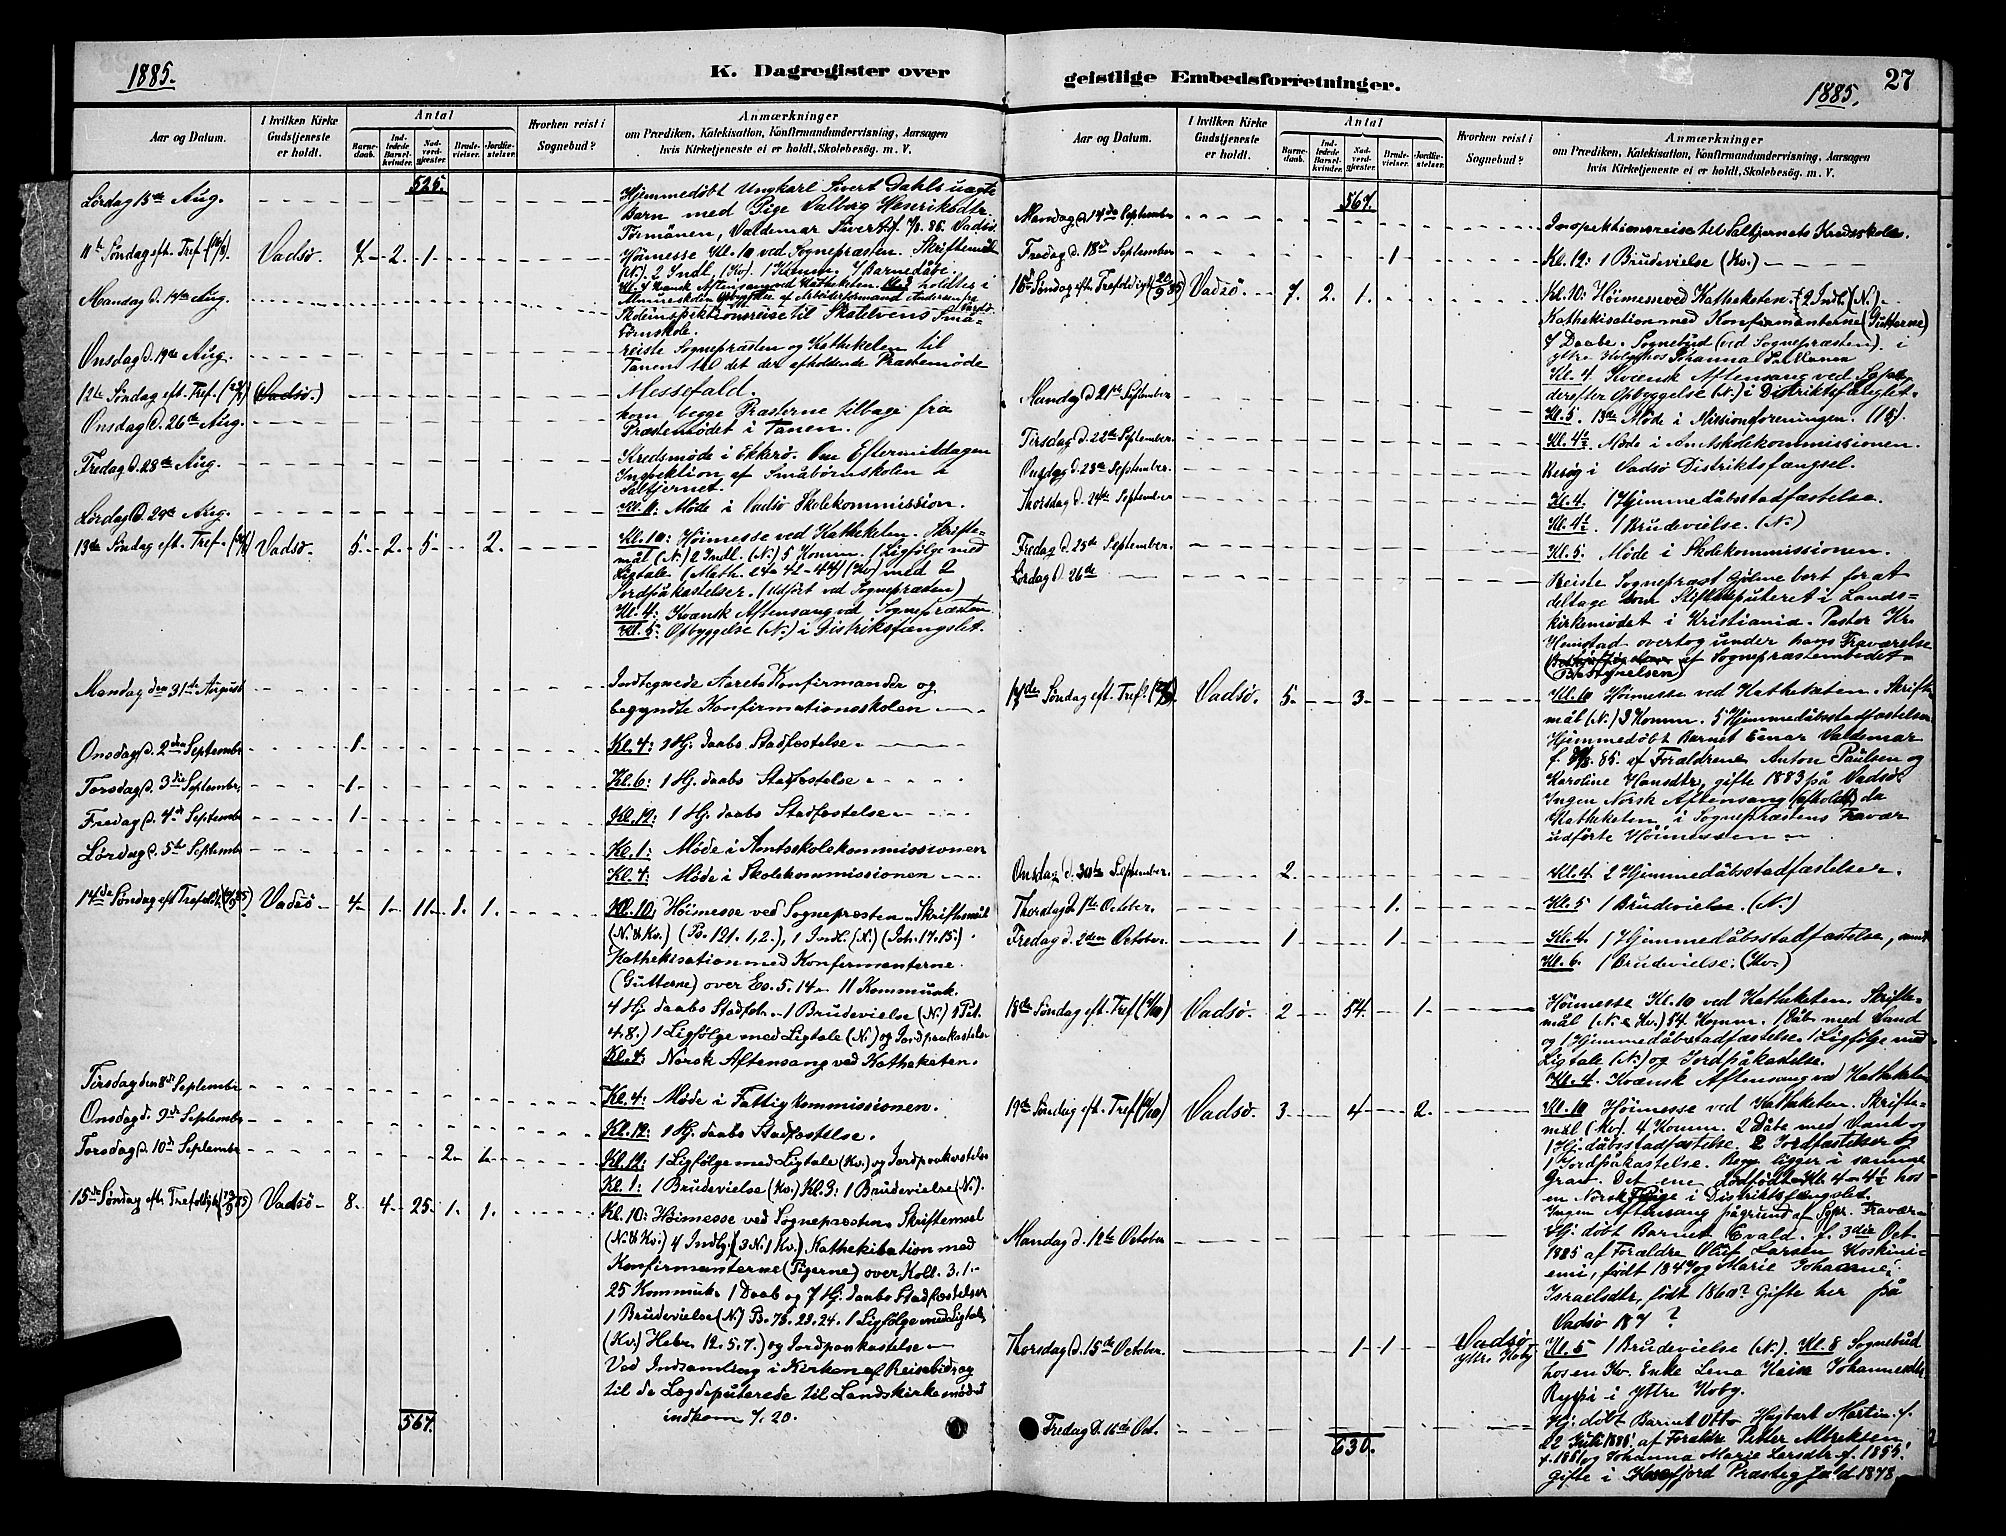 1885.
K. Dagregister over
Aar og Datum.
I hvilken Kirke Gudstjeneste er holdt.
Antal
Barne-daab.
Ind-ledede Barsel-kvinder.
Nad-verd-gjester.
Brude-vielser.
Jordfæ-stelser.
Hvorhen reist i Sognebud?
Anmærkninger
om Prædiken, Katekisation, Konfirmandundervisning, Aarsagen
hvis Kirketjeneste ei er holdt, Skolebesøg. m. V.
525.
Lørdag 15de Aug. Hjemmedøbt Ungkarl Sivert Dahls uægte
Barn med Pige Valborg Henriksdtr.
Valdemar Sivert f. Vadsø.
11te Søndag eft. Tref. (16/8). Vadsø. 7 2 1 Høimesse Kl. 10 ved Sognepræsten. Skriftemål
2 Indl. (Kv.) 1 Komm. 7 Barnedåbe.
Kl. 4 Norsk Aftensang ved Katheketen.
Mandag d. 17de Aug.
Skoleinspektionsreise til Skatelvens Små-
børnskole.
Onsdag d. 19de Aug. reiste Sognepræsten og Katheketen til
Tanen til det der afholdende Præstemøde
12te Søndag eft. Tref. (23/8) (Vadsø) Messefald.
Onsdag d. 26de Aug. kom begge Præsterne tilbage fra
Præstemødet i Tanen.
Fredag d. 28de Aug. Kredsmøde i Ekkerö. Om Eftermiddagen
Inspektion af Småbørnskolen i
Saltjernet.
Lørdag d. 29de Aug. Kl. 4: Møde i Vadsø Skolekommission.
13de Søndag eft. Tref. (30/8) Vadsø. 5 2 5 2 Kl. 10: Høimesse ved Katheketen. Skrifte-
mål (N.) 2 Indl. (N.) 5 Komm. 1 Ligfølge med
Ligtale (Math. 24-42-44) (Kv) med 2
Jordpåkastelser. (Udført ved Sognepræsten)
Kl. 4: Kvænsk Aftensang ved Sognepræsten
Kl. 5: Opbyggelse (N.) i Distriksfængslet.
Mandag den 31te August Indtegnede Aarets Konfirmander og
begyndte Konfirmationsskolen.
Onsdag d. 2den September 1 Kl. 4: 1 Hj. daabs Stadfæstelse.
Torsdag d. 3die September 1 Kl. 6: 1 Hj. daabs Stadfæstelse.
Fredag d. 4de September 1 Kl. 12: 1 Hj. daabs Stadfæstelse.
Lørdag d. 5te September Kl. 1: Møde i Amtsskolekommissionen
Kl. 4: Møde i Skolekommissionen
14de Søndag eft Trefoldt. Vadsø 4 1 11 1 1 Kl. 10: Høimesse ved Sognepræsten. Skriftemål
(N. & Kv.) (Ps. 121. 1,2.), 1 Indl. (N.) (Joh. 17. 15.)
Kathekisation med Konfirmanterne
(Gutterne) over Ev. 5. 14. 11 Kommunik.
4 Hj daabs Stadfæt. 1 Brudevielse (N.) 1 Pet.
4. 8.) 1 Ligfølge med Ligtale (N.) og Jordpaakastelse
Kl. 4: Norsk Aftensang ved Katheketen.
Tirsdag den 8de September Kl. 4: Møde i Fattigkommissionen.
Onsdag d. 9de September Kl. 12: 1 Hj. daabs Stadfæstelse.
Torsdag d. 10de September 2 1 Kl. 12: 1 Ligfølge med Ligtale (Kv.) og Jordpaakastelse
Kl. 1: 1 Brudevielse (Kv.) Kl. 3: 1 Brudevielse (N.).
15de Søndag eft Trefoldigh. Vadsø 8 4 25 1 1 Kl. 10: Høimesse ved Sognepræsten. Skriftemål
(N. & Kv.) 4 Indlg. (3 N. 1 Kv.) Kathekisation med
Konfirmanterne (Pigerne) over Koll. 3. 1.
25 Kommuk. 1 Daab og 7 Hj. daabs Stadfæstelser
1 Brudevielse (N.) Ps. 73. 23. 24. 1 Ligfølge med Ligtale
(Kv.) Hebr. 12. 5. 7.) og Jordpaakastelse
Ved Indsamling i Kirken af Reisebidrag
til de Lægdeputerede til Landskirkemødet
indkom 7. 20.
567.
geistlige Embedsforretninger.
1885.
27
Aar og Datum.
I hvilken Kirke Gudstjeneste er holdt.
Antal
Barne-daab.
Ind-ledede Barsel-kvinder.
Nad-verd-gjester.
Brude-vielser.
Jordfæ-stelser.
Hvorhen reist i Sognebud?
Anmærkninger
om Prædiken, Katekisation, Konfirmandundervisning, Aarsagen
hvis Kirketjeneste ei er holdt, Skolebesøg. m. V.
567.
Mandag d. 14de September Inspektionsreise til Saltjernets Kredsskole.
Fredag d. 18de September 1 Kl. 12: 1 Brudevielse (Kv.)
16de Søndag eft. Trefoldigh. (20/9 85) Vadsø. 7 2 1 Kl. 10: Höimesse ved Katheketen. 2 Indl. (N.)
Kathekisation med Konfirmanterne (Gutterne)
7 Daabe. Sognebud (ved Sognepræsten) i
ytre hos Johanna
Kl. 4 Kvænsk Aftensang ved
derefter Opbyggelse (N.) i Distriktsfængslet.
Mandag d. 21de September Kl. 5. 13de Møde i Missionsforeningen. (15).
Tirsdag d. 22de September. Kl. 4½ Møde i Amtskolekommissionen.
Onsdag d. 23de September. Besøg i Vadsø Distriktsfængsel.
Thorsdag d. 24de September Kl. 4. 1 Hjemmedåbsstadfæstelse.
Kl. 4½. 1 Brudevielse. (N.)
Fredag d. 25de September. Kl. 5. Møde i Skolekommissionen.
Lørdag d. 26de Reiste Sognepræst Gjölme bort for at
deltage som Stiftsdeputeret i Lands-
kirkemødet i Kristiania. Pastor Kr.
overtog under hans Fraværelse
af Sognepræstembedet
(Bestyrelsen)
17de Søndag eft. Tref. Vadsø. 5 3 Kl. 10 Höimesse ved Katheketen. Skrifte-
mål (N.) 3 Komm. 5 Hjemmedåbsstadfæstelser
Hjemmedøbt Barnet Einar Valdemar
f. 85. af Forældrene Anton Paulsen og
Karoline Hansdtr, gifte 1883 på Vadsø.
Ingen Norsk Aftensang (afholdt) da
Katheketen i Sognepræstens Fravær
udførte Høimessen
Onsdag d. 30te September. 2 Kl. 4. 2 Hjemmedåbsstadfæstelser.
Thorsdag d. 1te October. 1 Kl. 5 1 Brudevielse. (N.)
Fredag d. 2den October. 1 1 Kl. 4. 1 Hjemmedåbsstadfæstelse, samt
Kl. 6. 1 Brudevielse. (Kv.)
18de Søndag eft. Tref (4/10) Vadsø. 2 54 1 Høimesse Kl. 10 ved Katheketen. Skrifte-
mål (N. & Kv.) 54 Komm. 1 Dåb med Vand
og 1 Hjemmedåbstadfæstelse. 1 Ligfølge med
Ligtale (N.) og Jordpåkastelse.
Kl. 4. Kvænsk Aftensang ved Katheketen
19de Søndag eft. Tref (11/10) Vadsø. 3 4 2 Kl. 10 Høimesse ved Katheketen. Skrifte-
mål (Kv.) 4 Komm. 2 Dåbe med Vand og
1 Hj. dåbsstadfæstelse. 2 Jordfæstelser og
1 Jordpåkastelse. Begge ligger i samme
Grav. Det ene dødfødt. Kl. 4-4½ hos
en Norsk Pige i Distriktsfængslet.
Ingen Aftensang pågrund af Sgpr. Fravær
Mandag d. 12te October Hj. døbt Barnet Evald. f. 3die Oct.
1885 af Forældre Oluf Larsen Koskini-
emi, født 1847 og Marie Johanne
Israelsdtr, født 1860? Gifte her på
Vadsø 187 ?
Thorsdag d. 15de October. 1 1 Vadsø Ytre Koby Kl. 5 1 Brudevielse (N.). Kl. 8 Sognebud
hos en Kv. Enke Lena Johannesdtr
i Ytre Koby.
Fredag d. 16de Oct. Hj. døbt Barnet Otto Hagbart Martin f.
22 Juli 1885. af Forældre Petter
f. 1851 og Johanna Marie Larsdtr f. 1855.
Gifte i Præstegjæld 1878
630.